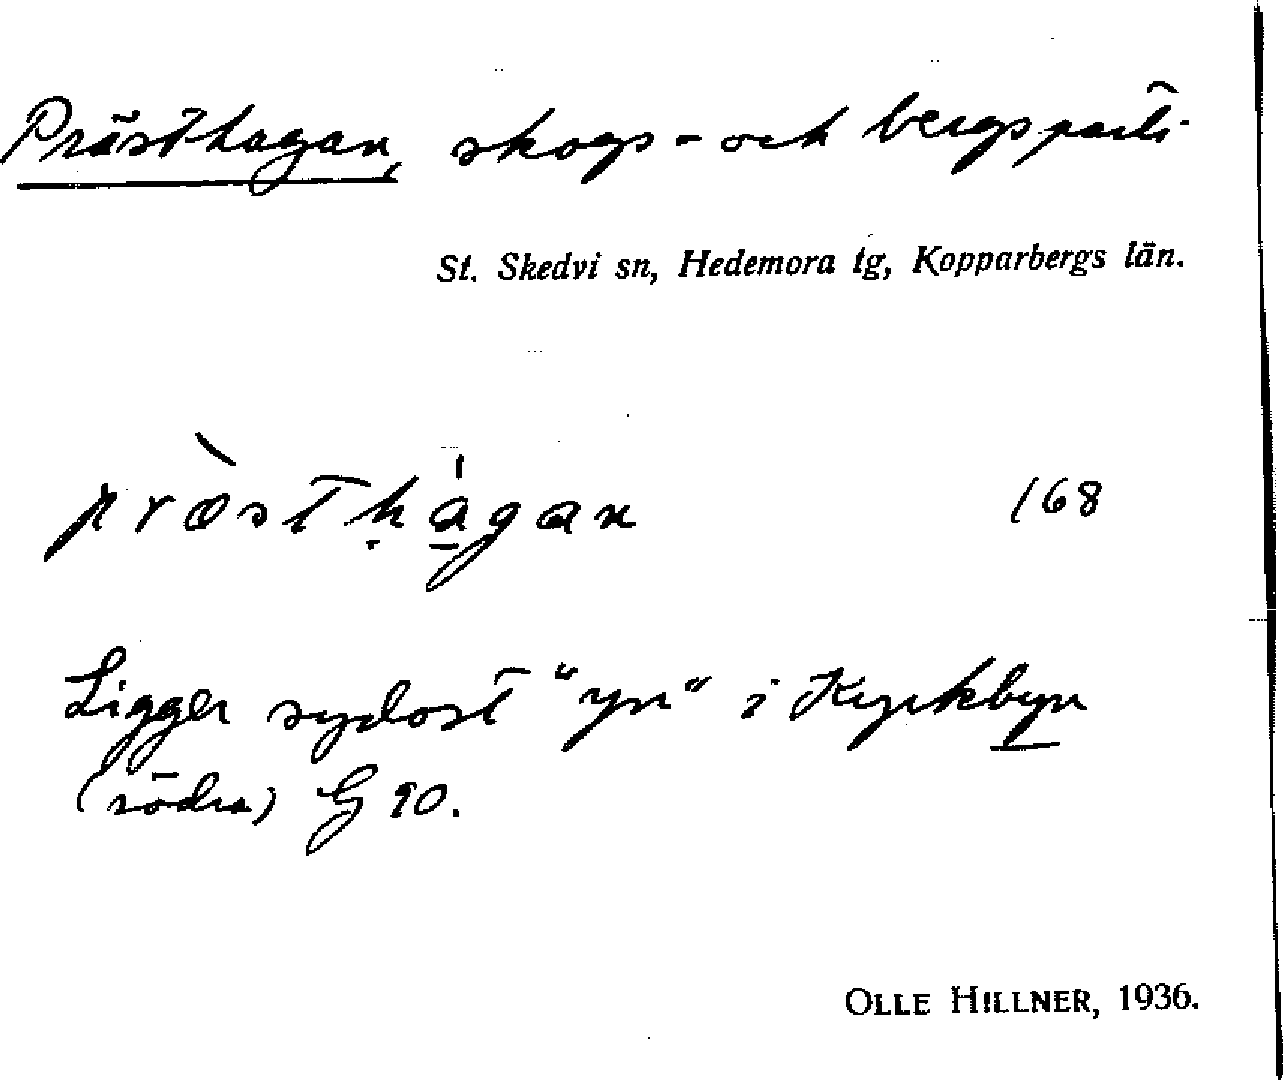 Prästhagan, skogs- och bergsparti.
St. Skedvi sn, Hedemora tg, Kopparbergs län.
præ̀stḥá̱gan 168
Ligger sydost "yn" i Kyrkbyn
(södra) G 90.
OLLE HILLNER, 1936.